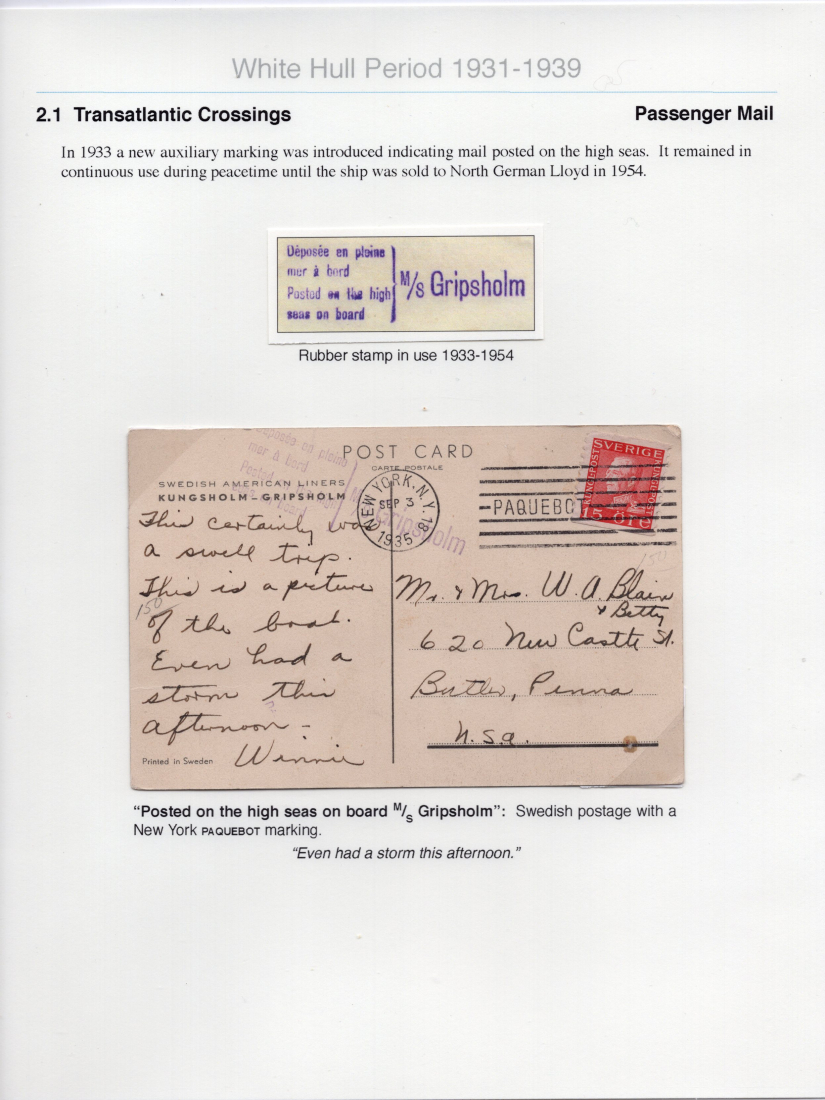 White Hull Period 1931-1939
2.1 Transatlantic Crossings
Passenger Mail
In 1933 a new auxiliary marking was introduced indicating mail posted on the high seas. It remained in
continuous use during peacetime until the ship was sold to North German Lloyd in 1954.
Déposée en pleine
mer à bord
Posted on the high
seas on board
M/s Gripsholm
Rubber stamp in use 1933-1954
POST CARD
CARTE POSTALE
SWEDISH AMERICAN LINERS
KUNGSHOLM - GRIPSHOLM
en pleine
mer à bord
Posted
Gripsholm
NEW YORK, N.Y.
SEP 3
1935
PAQUEBO
SVERIGE
15 ÖRE
This certainly was
a swell trip.
This is a picture
of the boat.
Even had a
storm this
afternoon -
Winnie
150
Mr. & Mrs. W. A. Blain
& Betty
620 New Castle St.
Butler, Penna
U.S.A.
Printed in Sweden
"Posted on the high seas on board M/s Gripsholm": Swedish postage with a
New York PAQUEBOT marking.
"Even had a storm this afternoon."